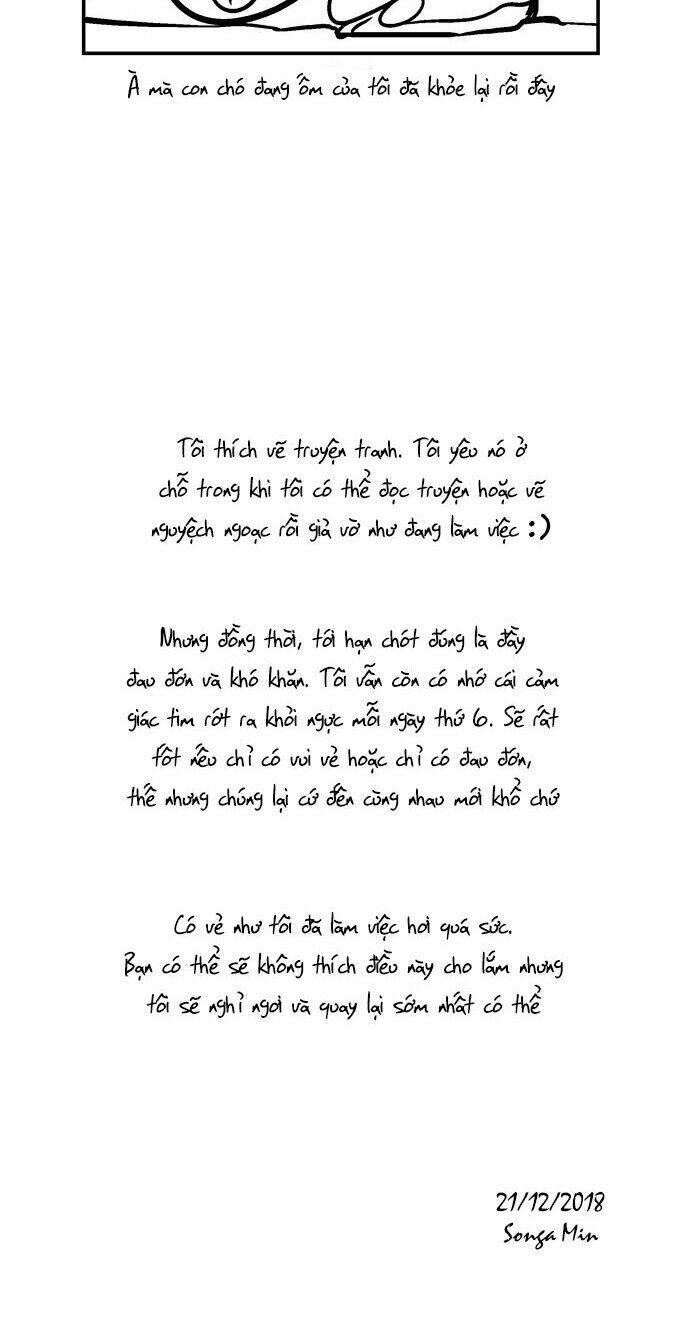 À mà con chó đang ốm của tôi đã khỏe lại rồi đấy
Tôi thích vẽ truyện tranh. Tôi yêu nó ở
chỗ trong khi tôi có thể đọc truyện hoặc vẽ
nguyệch ngoạc rồi giả vờ như đang làm việc :)
Nhưng đồng thời, tới hạn chót đúng là đầy
đau đớn và khó khăn. Tôi vẫn còn có nhớ cái cảm
giác tim rớt ra khỏi ngực mỗi ngày thứ 6. Sẽ rất
tốt nếu chỉ có vui vẻ hoặc chỉ có đau đớn,
thế nhưng chúng lại cứ đến cùng nhau mới khổ chứ
Có vẻ như tôi đã làm việc hơi quá sức.
Bạn có thể sẽ không thích điều này cho lắm nhưng
tôi sẽ nghỉ ngơi và quay lại sớm nhất có thể
21/12/2018
Songa Min